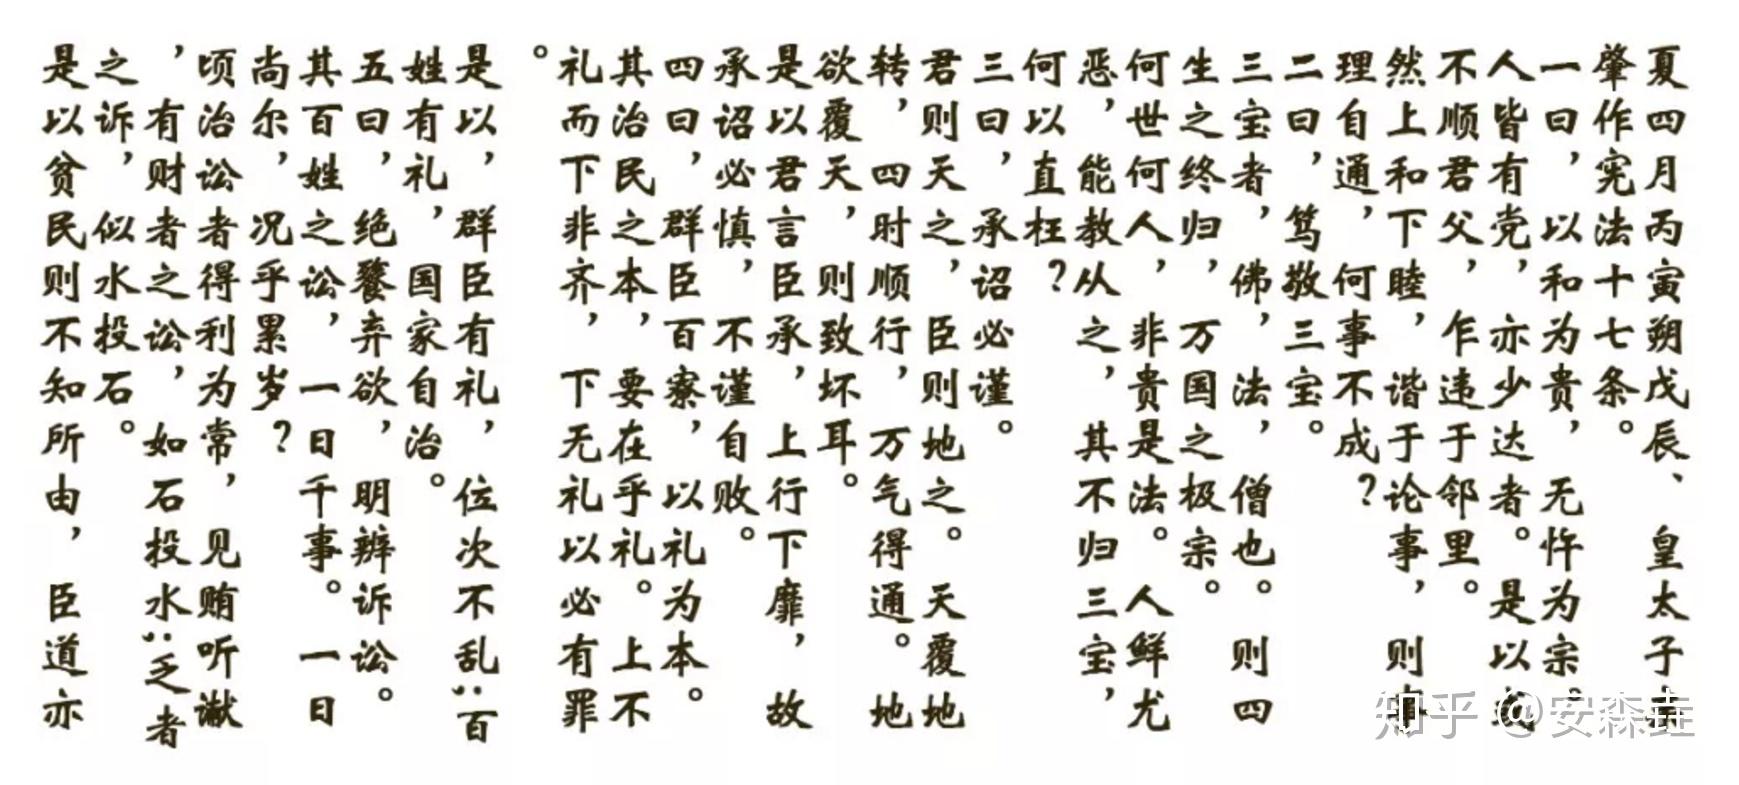 夏四月丙寅朔戊辰、皇太子亲
肇作宪法十七条。
一曰，以和为贵，无忤为宗。
人皆有党，亦少达者。是以或
不顺君父，乍违于邻里。
然上和下睦，谐于论事，则事
理自通，何事不成？
二曰，笃敬三宝。
三宝者，佛，法，僧也。则四
生之终归，万国之极宗。
何世何人，非贵是法。人鲜尤
恶，能教从之，其不归三宝，
何以直枉？
三曰，承诏必谨。
君则天之，臣则地之。天覆地
转，四时顺行，万气得通。地
欲覆天，则致坏耳。
是以君言臣承，上行下靡，故
承诏必慎，不谨自败。
四曰，群臣百寮，以礼为本。
其治民之本，要在乎礼。上不
礼而下非齐，下无礼以必有罪
。
是以，群臣有礼，位次不乱；百
姓有礼，国家自治。
五曰，绝餮弃欲，明辨诉讼。
其百姓之讼，一日千事。一日
尚尔，况乎累岁？
顷治讼者得利为常，见贿听谳
，有财者之讼，如石投水；乏者
之诉，似水投石。
是以贫民则不知所由，臣道亦
知乎 @安森垚